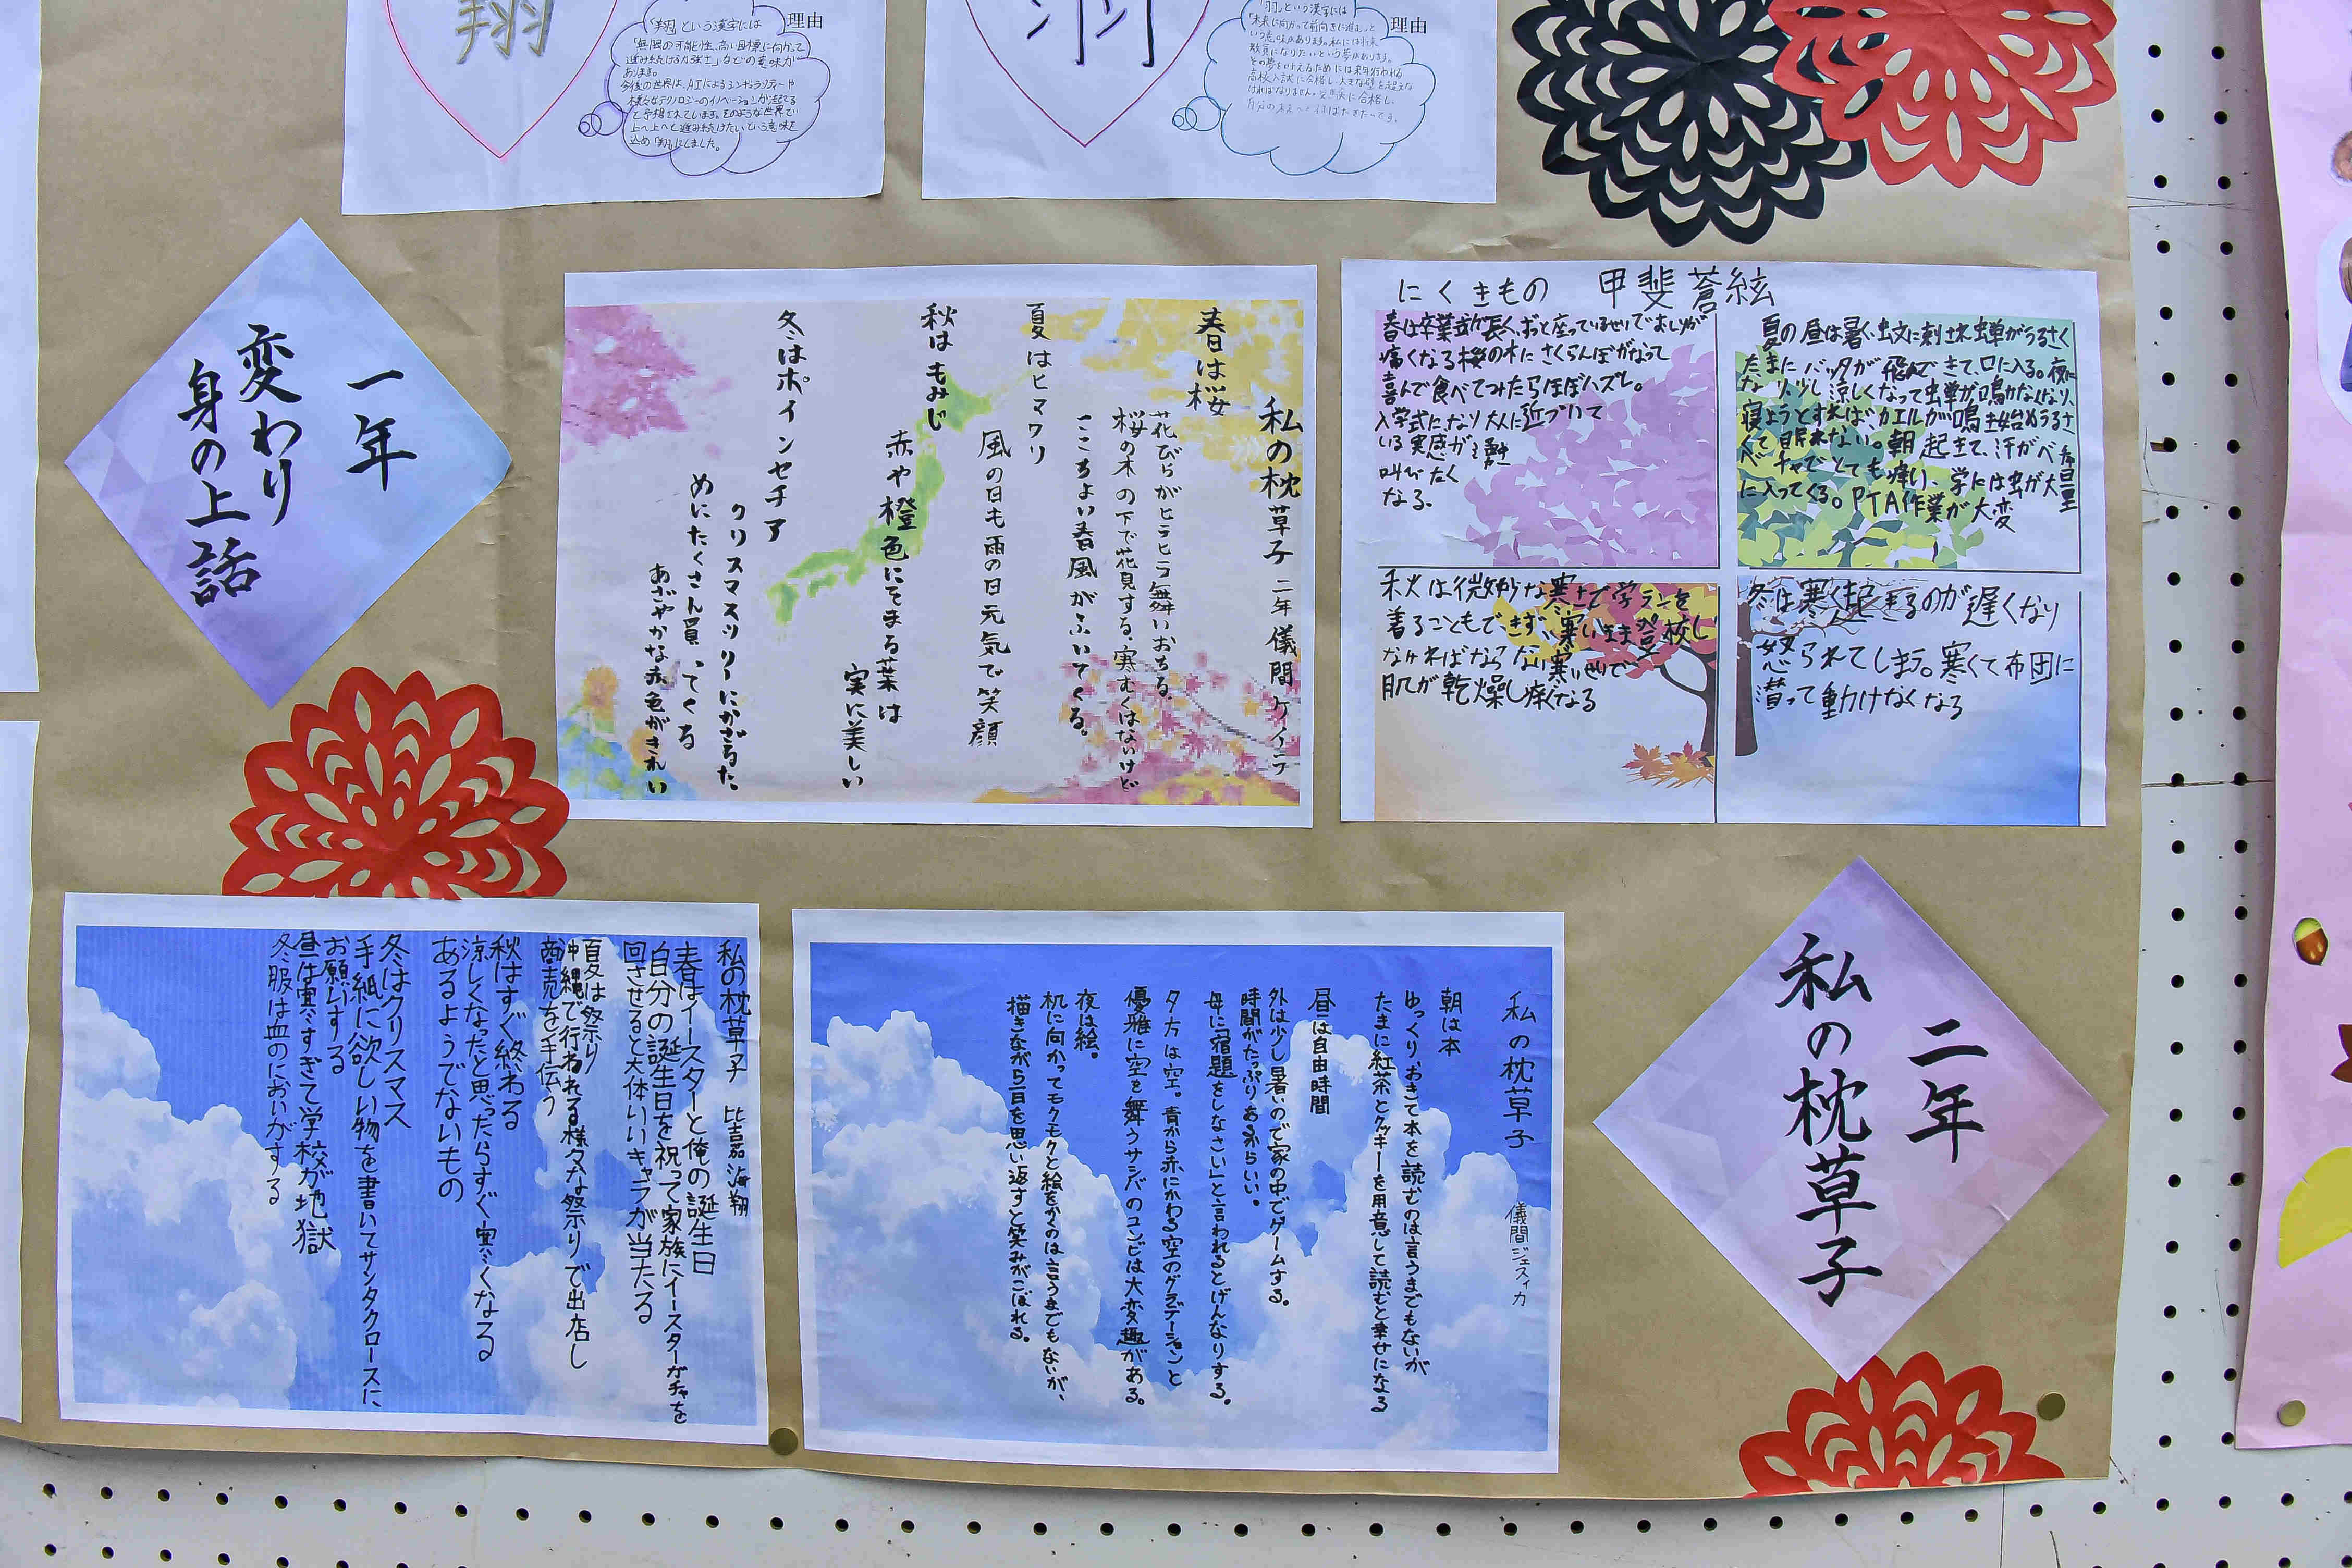 翔
理由
「翔」という漢字には
「無限の可能性、高い目標に向かって
進み続ける力強さ」などの意味が
あります。
今後の世界は、AIによるシンギュラリティーや
様々なテクノロジーのイノベーションが起こる
と予想されています。そのような世界で
上へ上へと進み続けたいという意味を
込め「翔」にしました。
羽
理由
「羽」という漢字には
「未来に向かって前向きに進む」と
いう意味があります。私には将来
教員になりたいという夢があります。
その夢を叶えるためには来年行われる
高校入試に合格し、大きな壁を超えな
ければなりません。
一年
変わり
身の上話
私の枕草子 二年 儀間ケイラ
春は桜
花びらがヒラヒラ舞いおちる。
桜の木の下で花見する。寒むくはないけど
ここちよい春風がふいてくる。
夏はヒマワリ
風の日も雨の日元気で笑顔
秋はもみじ
赤や橙色にてまる葉は
実に美しい
冬はポインセチア
クリスマスツリーにかざるた、
めにたくさん買ってくる
あざやかな赤色がきれい
にくきもの 甲斐蒼絃
春は卒業式が長く、ずっと座っているせいでおしりが
痛くなる桜の木にさくらんぼがなって
喜んで食べてみたらほぼハズレ。
入学式になり大人に近づいて
いる実感が
叫びたく
なる。
夏の昼は暑く、蚊に刺され蝉がうるさく
たまにバッタが飛んできて、口に入る。夜に
なり少し涼しくなって蝉が鳴かなくなり、
寝ようとすれば、カエルが鳴き始めうるさ
くて眠れない。朝起きて、汗がベ
ベチャでとても痒い、学には虫が大量
に入ってくる。PTA作業が大変
秋は微妙な寒さで学ランを
着ることもできず、寒いまま登校し
なければならない寒いせいで
肌が乾燥し痒くなる
冬は寒く起きるのが遅くなり
怒られてしまう。寒くて布団に
潜って動けなくなる
私の枕草子 比嘉海翔
春はイースターと俺の誕生日
自分の誕生日を祝って家族にイースターガチャを
回させると大体いいキャラが当たる
夏は祭り
沖縄で行われる様々な祭りで出店し
商売を手伝う
秋はすぐ終わる
涼しくなったと思ったらすぐ寒くなる
あるようでないもの
冬はクリスマス
手紙に欲しい物を書いてサンタクロースに
お願いする
昼は寒すぎて学校が地獄
冬服は血のにおいがする
私の枕草子 儀間ジェスィカ
朝は本
ゆっくりおきて本を読むのは言うまでもないが
たまに紅茶とクッキーを用意して読むと幸せになる
昼は自由時間
外は少し暑いので家の中でゲームする。
時間がたっぷりあるからいい。
母に「宿題をしなさい」と言われるとげんなりする。
夕方は空。青から赤にかわる空のグラデーションと
優雅に空を舞うサシバのコンビは大変趣がある。
夜は絵。
机に向かってモクモクと絵をかくのは言うまでもないが、
描きながら一日を思い返すと笑みがこぼれる。
二年
私の枕草子